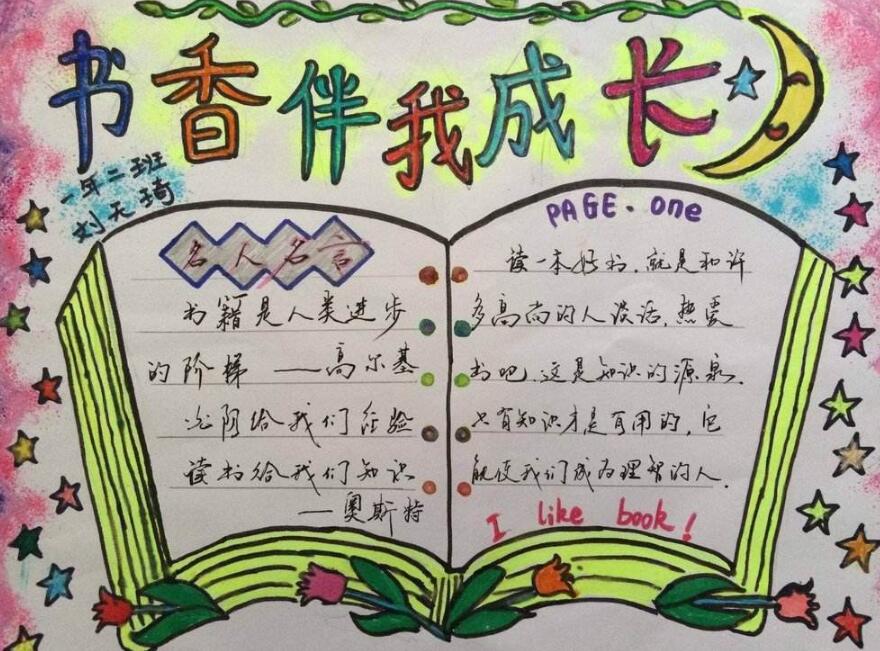 书香伴我成长
一年二班
刘天琦
名人名言
书籍是人类进步
的阶梯 ——高尔基
光阴给我们经验
读书给我们知识
——奥斯特
PAGE. one
读一本好书,就是和许
多高尚的人谈话,热爱
书吧,这是知识的源泉.
只有知识才是有用的,它
能使我们成为理智的人.
I like book!